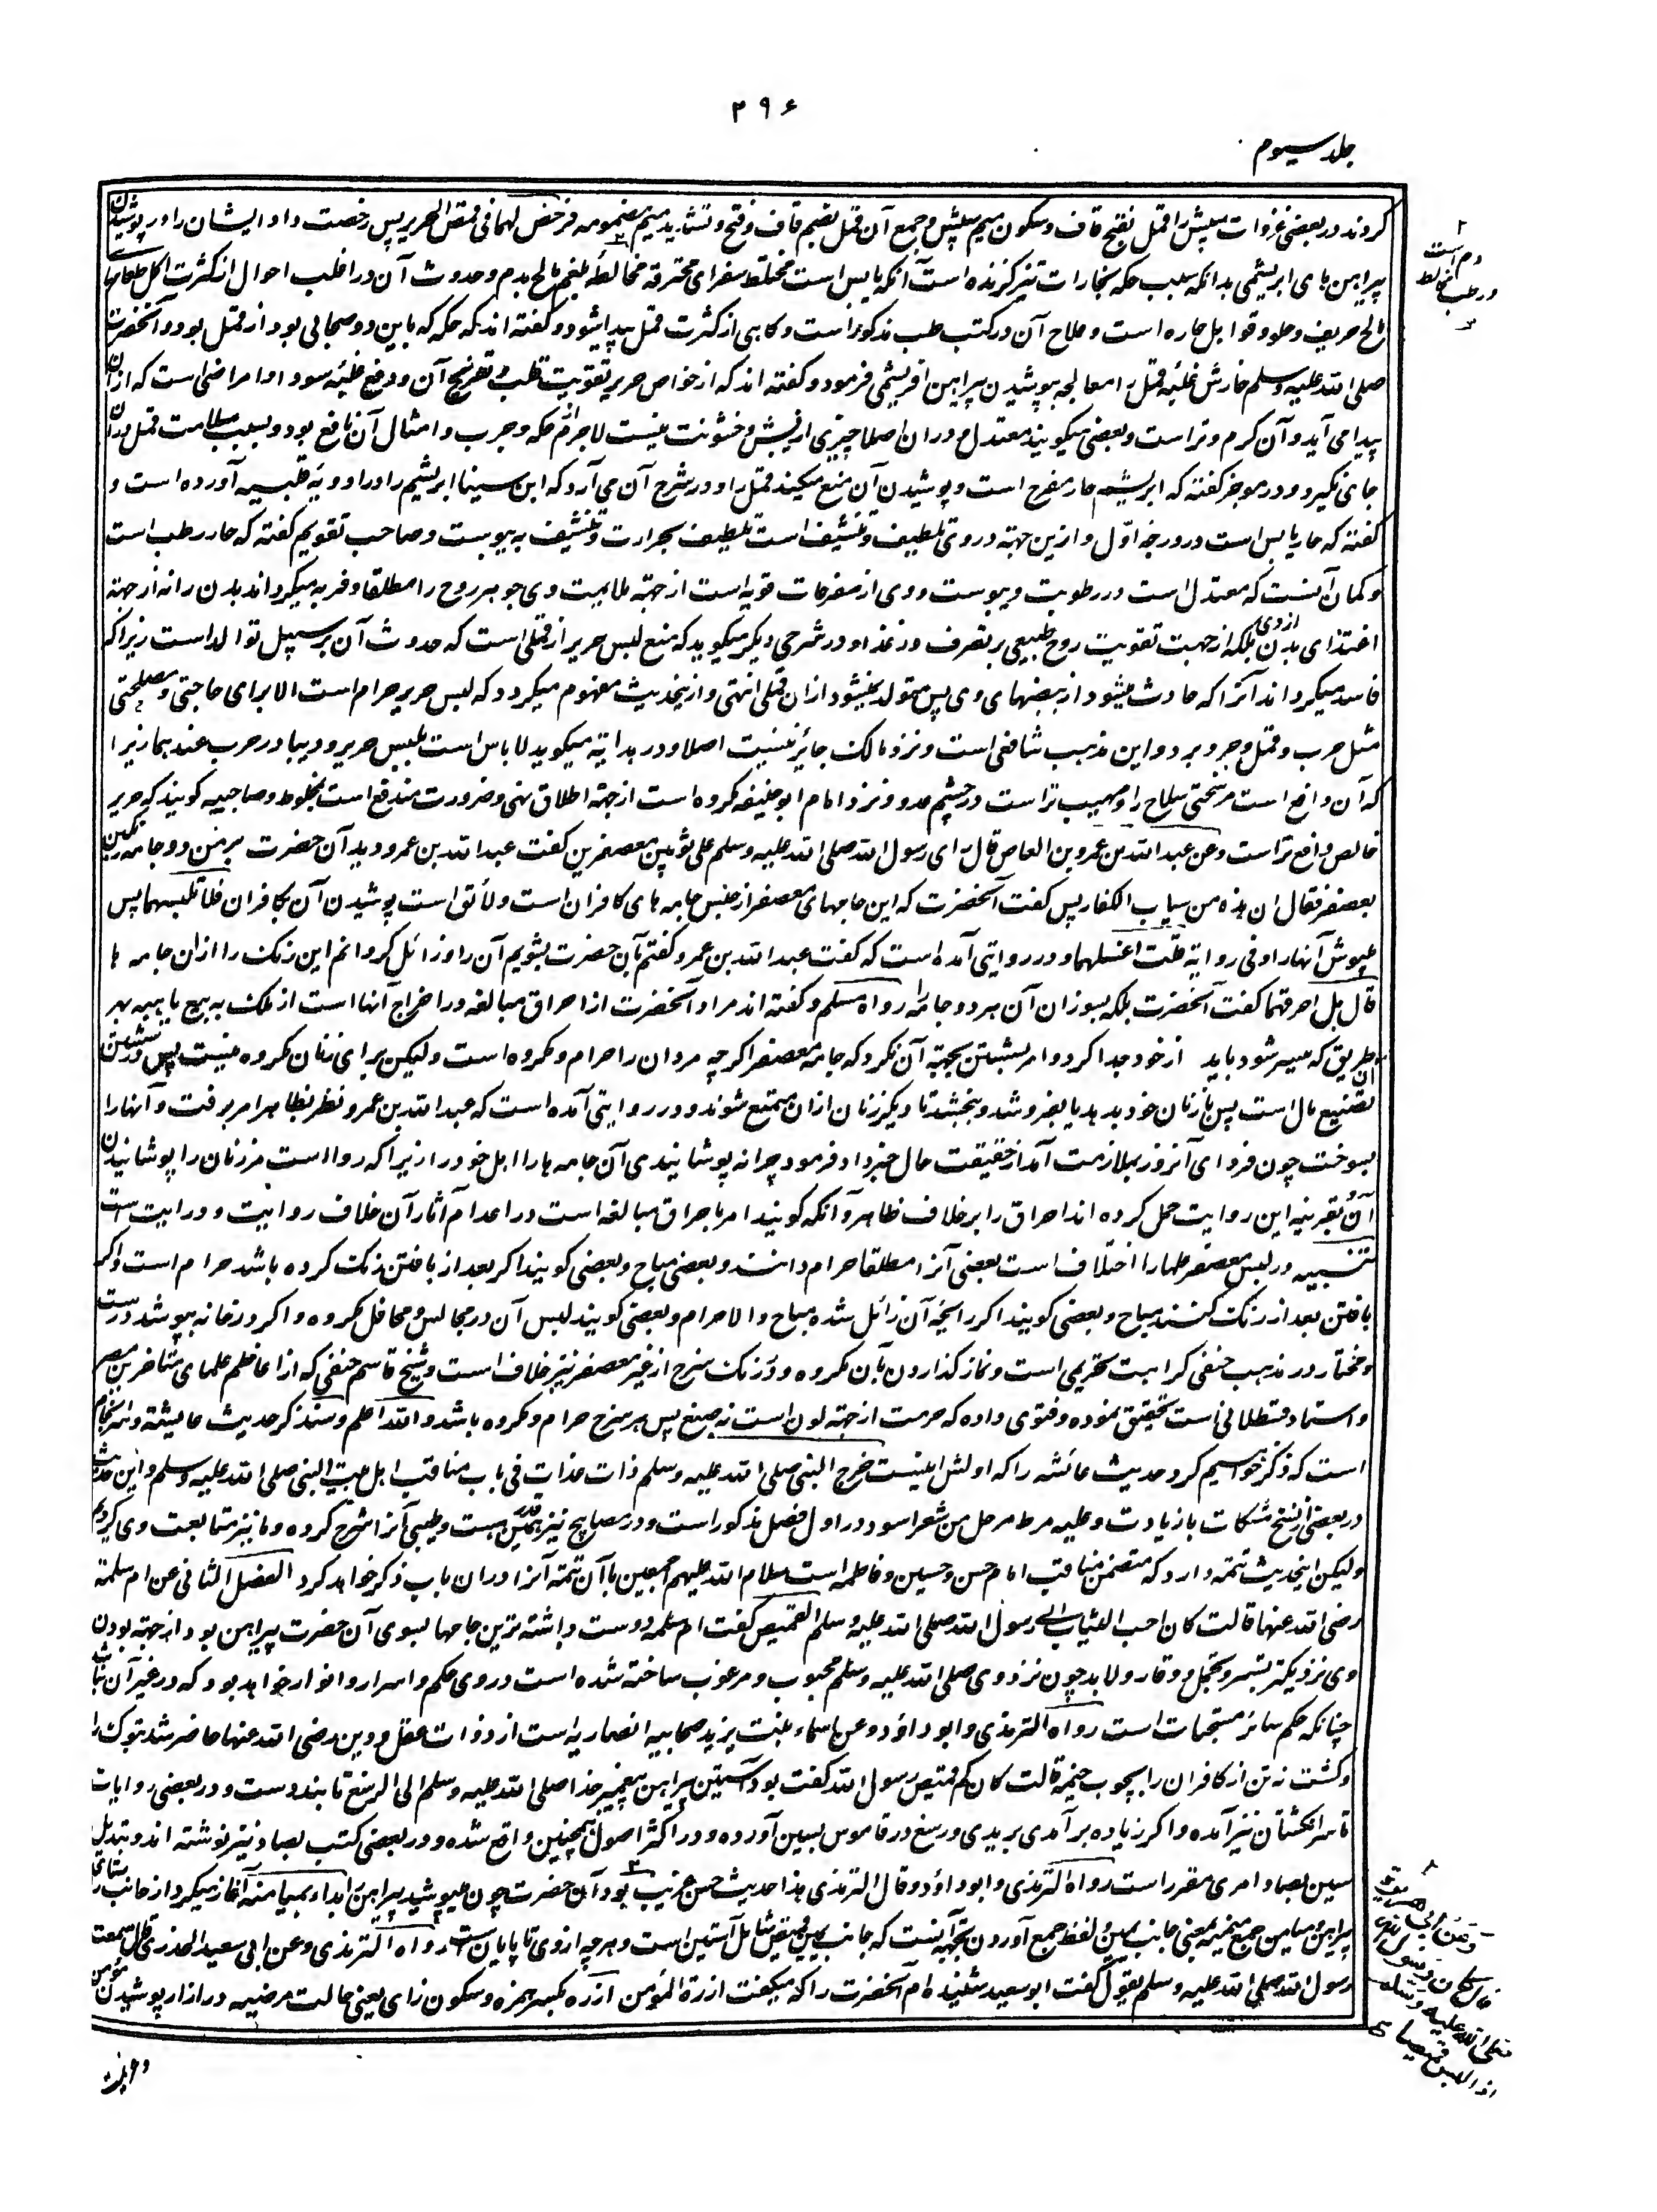 ۲۹۶
جلد سیوم
کردند در بعضی غزوات سپش را قمل بفتح قاف و سکون میم سپش و جمع آن قمل بضم قاف و فتح و تشدید میم مضمومه فرخص لهما فی قمص الحریر پس رخصت داد ایشان را در پوشیدن
پیراهن های ابریشمی بدانکه سبب حکه بخارات تیز گزنده است آنکه یابس است مختلط صفرای محترقه مخالطه بلغم مالح بدم و حدوث آن در اغلب احوال از کثرت اکل طعامها
مالح حریف و حلو و توابل حاره است و علاج آن در کتب طب مذکور است و گاهی از کثرت قمل پیدا میشود و گفته اند که حکه که باین دو صحابی بود از قمل بود و آنحضرت
صلی الله علیه وسلم خارش غلبه قمل را معالجه بپوشیدن پیراهن ابریشمی فرمود و گفته اند که از خواص حریر تقویت قلب و تفریح آن و دفع غلبه سودا و امراضی است که ازان
پیدا می آید و آن گرم و تر است و بعضی میگویند معتدل و دران اصلا چیزی از یبس و خشونت نیست لاجرم حکه و جرب و امثال آن نافع بود و بسبب ملاست قمل دران
جای نگیرد و در موجز گفته که ابریشم حار مفرح است و پوشیدن آن منع میکند قمل را و در شرح آن می آرد که ابن سینا ابریشم را در ادویه قلبیه آورده است و
گفته که حار یابس است در درجه اول و ازین جهة در وی تلطیف و تنشیف است تلطیف بحرارت و تنشیف به یبوست و صاحب تقویم گفته که حار رطب است
و گمان آنست که معتدل است در رطوبت و یبوست و وی از مفرحات قویه است از جهة ملایمت وی جوهر روح را مطلقا و فربه میگرداند بدن را نه از جهة
اغتذای بدن ازوی بلکه از جهت تقویت روح طبیعی بر تصرف در غذا و در شرحی دیگر میگوید که منع لبس حریر از قملی است که حدوث آن بر سبیل توالد است زیرا که
فاسد میگرداند آنرا که حادث میشود از بیضهای وی پس متولد نمیشود ازان قملی انتهی و ازین حدیث مفهوم میگردد که لبس حریر حرام است الا برای حاجتی و مصلحتی
مثل حرب و قمل و جرب و برد و این مذهب شافعی است و نزد مالک جائز نیست اصلا و در هدایة میگوید لا باس است بلبس حریر و دیبا در حرب عندهما زیرا
که آن دافع است مر سختی سلاح را و مهیب تر است در چشم عدو و نزد امام ابوحنیفه مکروه است از جهة اطلاق نهی و ضرورت مندفع است بمخلوط و صاحبیه گویند که حریر
خالص دافع تر است وعن عبد الله بن عمرو بن العاص قال رای رسول الله صلی الله علیه وسلم علی ثوبین معصفرین گفت عبد الله بن عمرو دید آن حضرت بر من دو جامه رنگین
بعصفر فقال ان هذه من ثیاب الکفار پس گفت آنحضرت که این جامهای معصفر از جنس جامه های کافران است و لائق است پوشیدن آن بکافران فلا تلبسهما پس
مپوش آنها را و فی روایة قلت اغسلهما و در روایتی آمده است که گفت عبد الله بن عمرو گفتم بآن حضرت بشویم آن را و زائل گردانم این رنگ را ازان جامه ها
قال بل احرقهما گفت آنحضرت بلکه بسوزان آن هر دو جامه را رواه مسلم و گفته اند مراد آنحضرت از احراق مبالغه در اخراج آنها است از ملک به بیع یا هبه بهر
طریق که میسر شود باید از خود جدا کرد و امر بشستن بجهة آن نکرد که جامه معصفر اگر چه مردان را حرام و مکروه است ولیکن برای زنان مکروه نیست پس در شستن
آن تضییع مال است پس یا زنان خود بدهد یا بفروشد و ببخشد تا دیگر زنان ازان متمتع شوند و در روایتی آمده است که عبد الله بن عمرو نظر بظاهر امر برفت و آنها را
بسوخت چون فردای آنروز بملازمت آمد از حقیقت حال خبر داد فرمود چرا نه پوشانیدی آن جامه ها را اهل خود را زیرا که روا است مر زنان را پوشانیدن
آن و بقرینه این روایت حمل کرده اند احراق را بر خلاف ظاهر و آنکه گویند امر باحراق مبالغه است در اعدام آثار آن خلاف روایت و درایت است
تنبیه در لبس معصفر علما را اختلاف است بعضی آنرا مطلقا حرام دانند و بعضی مباح و بعضی گویند اگر بعد از بافتن رنگ کرده باشد حرام است و اگر
بافتن بعد از رنگ کنند مباح و بعضی گویند اگر رائحه آن زائل شده مباح والا حرام و بعضی گویند لبس آن در مجالس و محافل مکروه و اگر در خانه بپوشد درست
و مختار در مذهب حنفی کراهت تحریمی است و نماز گذاردن بآن مکروه و در رنگ سرخ از غیر معصفر نیز خلاف است و شیخ قاسم حنفی که از اعاظم علمای متاخرین مصر
و استاد قسطلانی است تحقیق نموده و فتوی داده که حرمت از جهة لون است نه صبغ پس هر سرخ حرام و مکروه باشد والله اعلم وسنذکر حدیث عایشة و سرانجام
است که ذکر خواهیم کرد حدیث عائشه را که اولش اینست خرج النبی صلی الله علیه وسلم ذات غداة فی باب مناقب اهل بیت النبی صلی الله علیه وسلم و این حدیث
در بعضی از نسخ مشکات با زیادت وعلیه مرط مرحل من شعر اسود در اول فصل مذکور است و در مصابیح نیز همین قدر هست و طیبی آنرا شرح کرده و ما نیز متابعت وی کردیم
ولیکن این حدیث تتمه دارد که متضمن مناقب امام حسن و حسین و فاطمه است سلام الله علیهم اجمعین با آن تتمه آنرا دران باب ذکر خواهد کرد الفصل الثانی عن ام سلمة
رضی الله عنها قالت کان احب الثیاب الی رسول الله صلی الله علیه وسلم القمیص گفت ام سلمه دوست داشته ترین جامها بسوی آن حضرت پیراهن بود از جهة بودن
وی نزدیکتر بتستر و تجمل و وقار و لابد چون نزد وی صلی الله علیه وسلم محبوب و مرغوب ساخته شده است در وی حکم و اسرار و انوار خواهد بود که در غیر آن نباشد
چنانکه حکم سائر مستحبات است رواه الترمذی وابو داؤد وعن اسماء بنت یزید صحابیه انصاریه است از ذوات عقل و دین رضی الله عنها حاضر شد یرموک را
و کشت نه تن از کافران را بچوب خیمه قالت کان کم قمیص رسول الله گفت بود آستین پیراهن پیغمبر خدا صلی الله علیه وسلم الی الرسغ تا بند دست و در بعضی روایات
تا سر انگشتان نیز آمده و اگر زیاده بر آمدی بریدی و رسغ در قاموس بسین آورده و در اکثر اصول همچنین واقع شده و در بعضی کتب بصاد نیز نوشته اند و تبدیل
سین بصاد امری مقرر است رواه الترمذی وابو داؤد وقال الترمذی هذا حدیث حسن غریب بود آن حضرت چون میپوشید پیراهن ابداء بمیامنه آغاز میکرد از جانب راستهای
پیراهن و میامن جمع میمنه بمعنی جانب یمین و لفظ جمع آوردن بجهة آنست که جانب یمین قمیص شامل آستین است و هر چه از وی تا پایان است رواه الترمذی وعن ابی سعید الخدری قال سمعت
رسول الله صلی الله علیه وسلم یقول گفت ابو سعید شنیده ام آنحضرت را که میگفت ازرة المؤمن ازره بکسر همزه و سکون زای یعنی حالت مرضیه در ازار پوشیدن مؤمن
۲
دم است
در طب مخالط
وعن ابی هریرة
قال کان رسول الله
صلی الله علیه وسلم
اذا لبس قمیصا